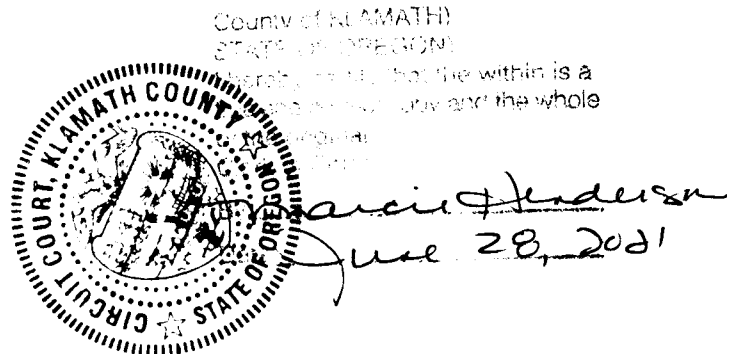 County of KLAMATH)
STATE OF OREGON)
that the within is a
copy and the whole
CIRCUIT COURT, KLAMATH COUNTY
STATE OF OREGON
Marcie Henderson
June 28, 2021